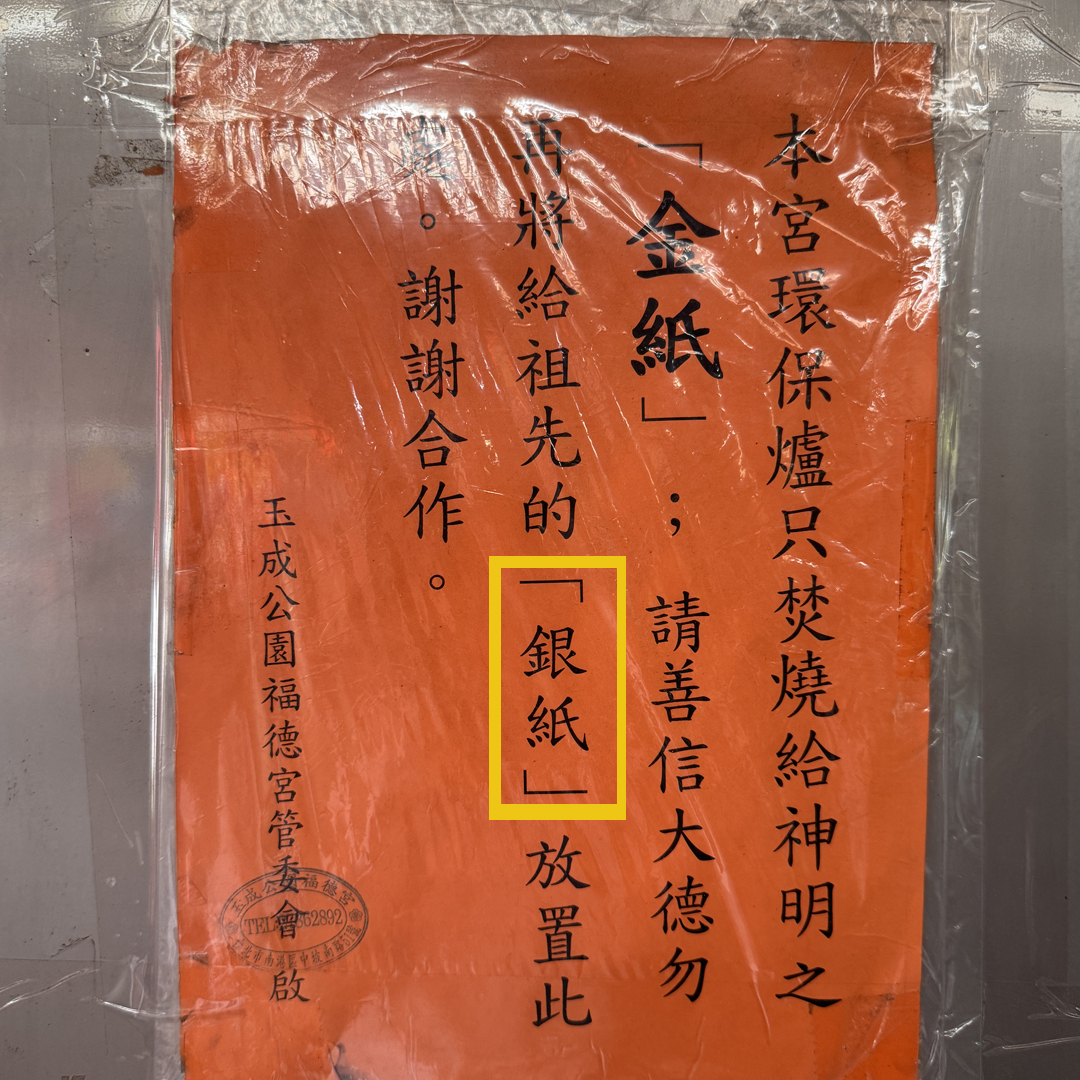 本宮環保爐只焚燒給神明之
「金紙」；請善信大德勿
再將給祖先的「銀紙」放置此
。謝謝合作。
玉成公園福德宮管委會啟
玉成公 福德宮
TEL 862892